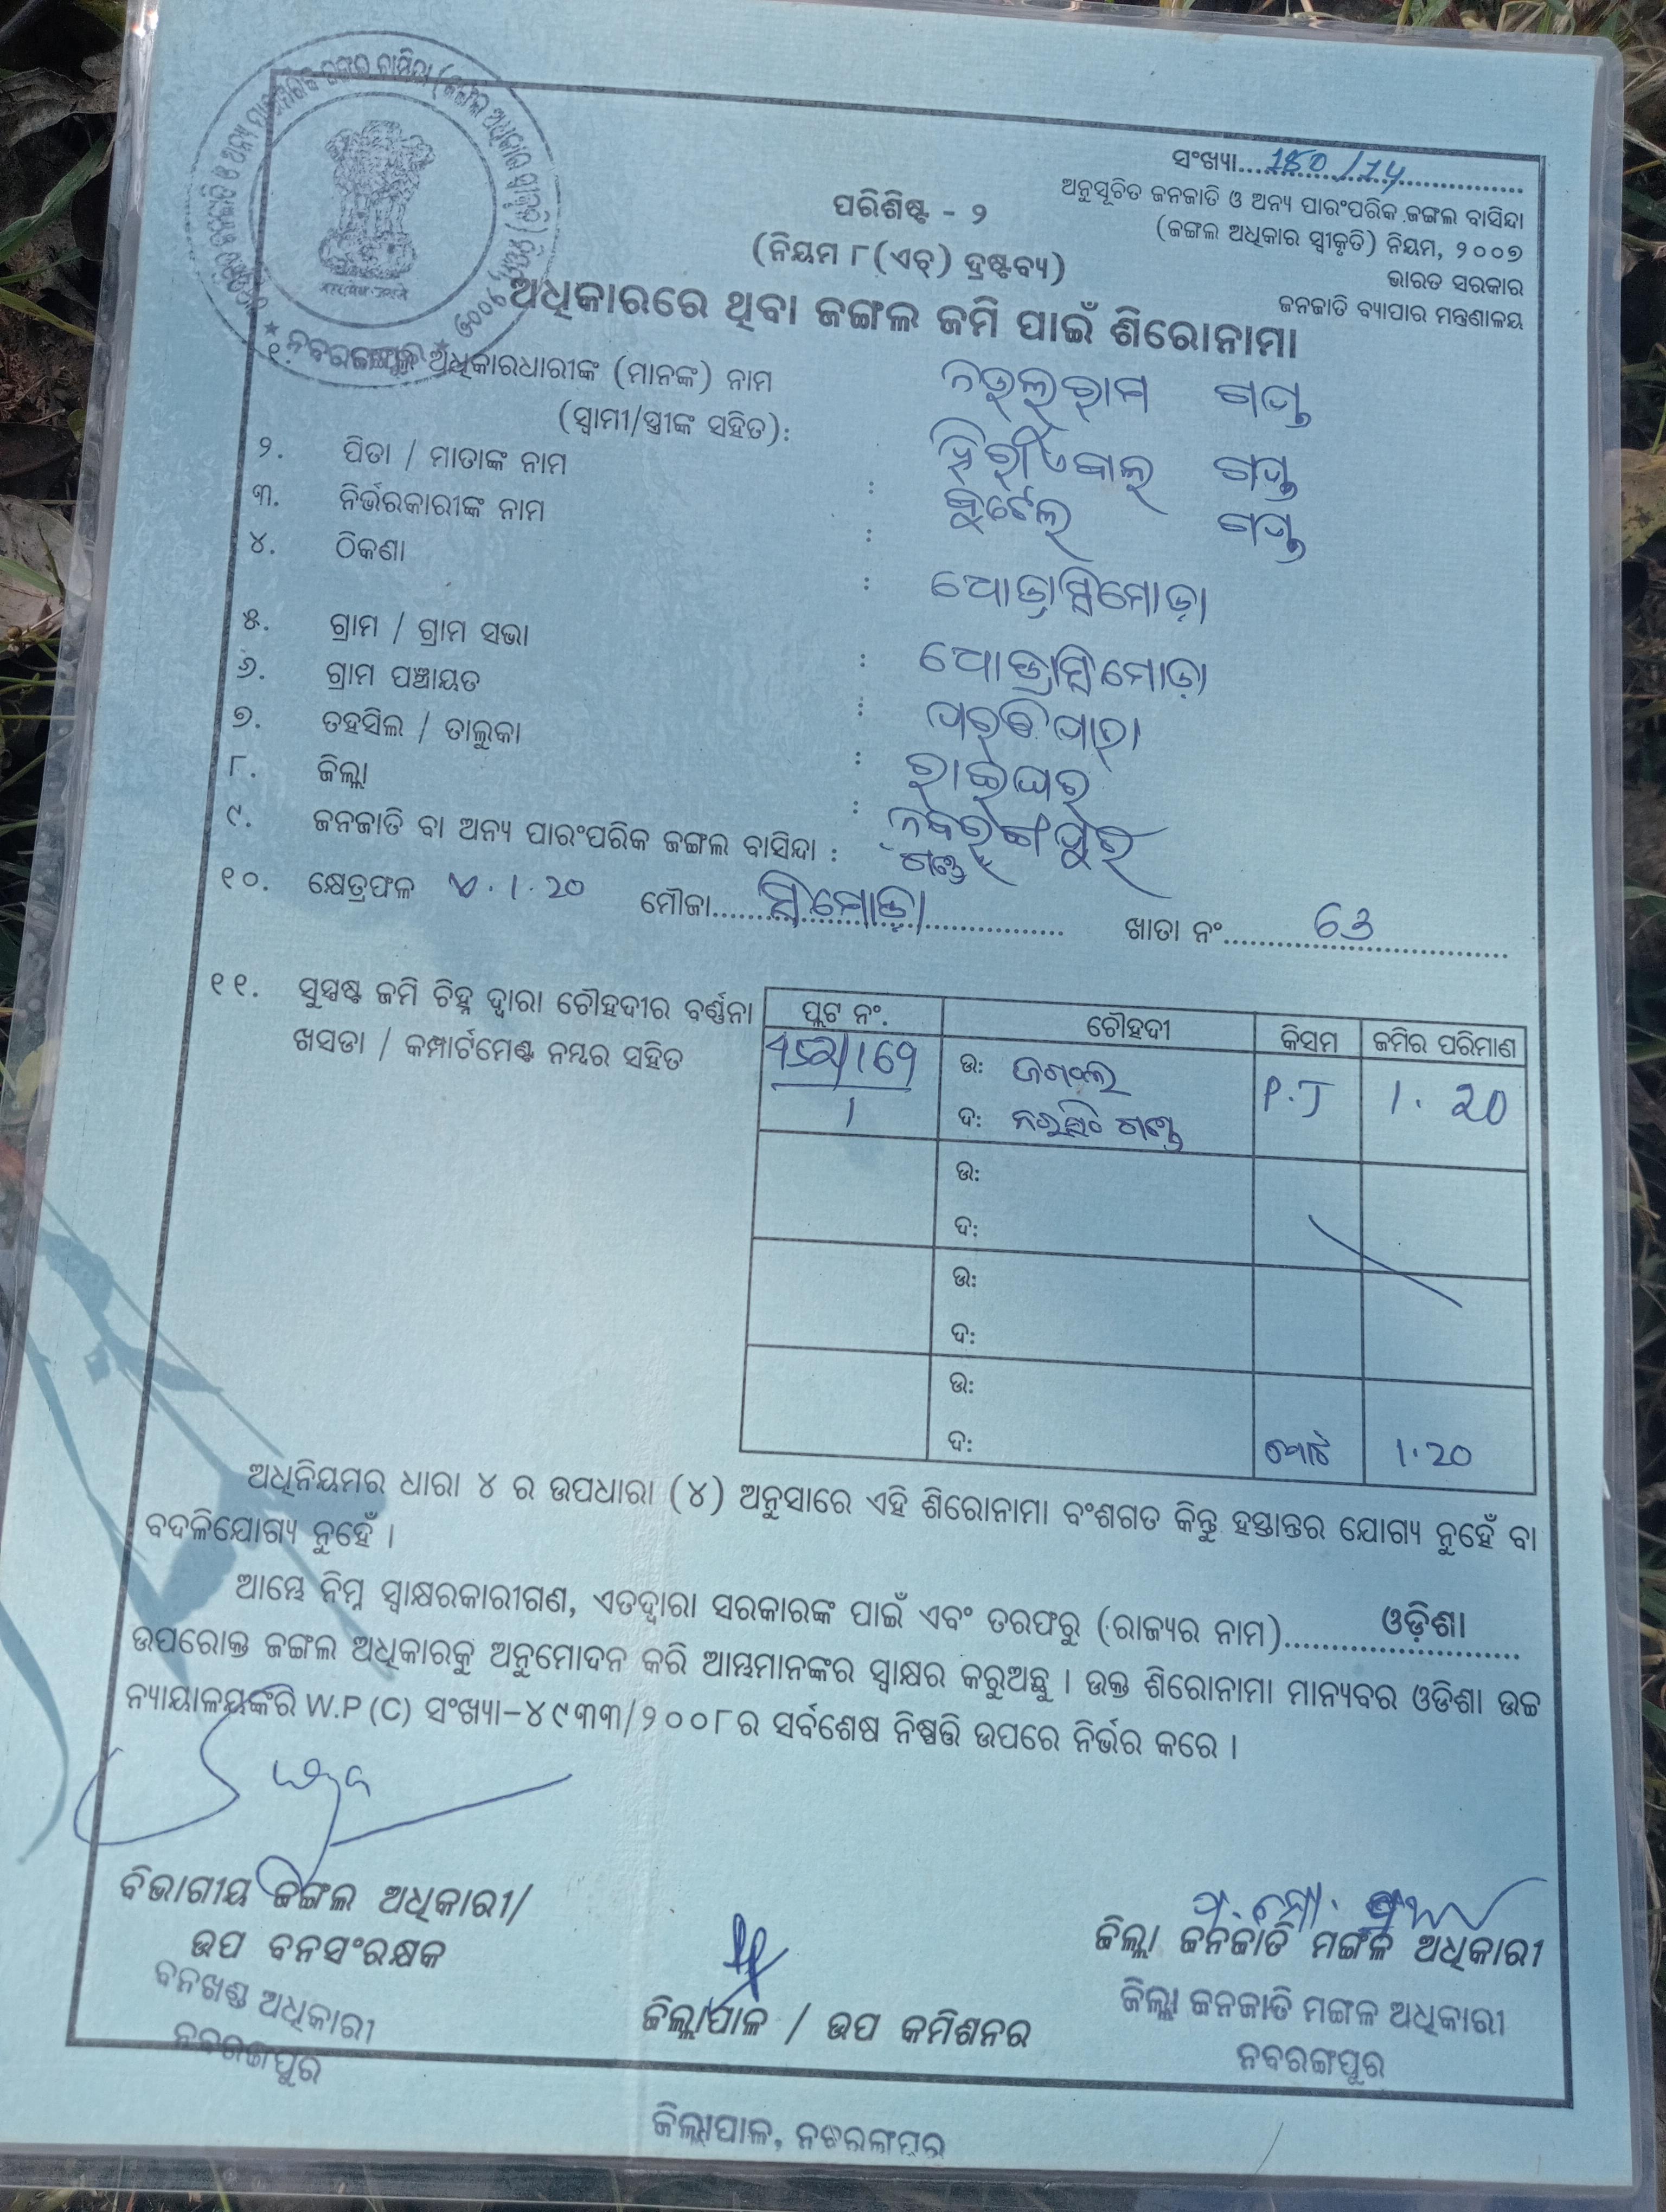 ସଂଖ୍ୟା 180/14
ଅନୁସୂଚିତ ଜନଜାତି ଓ ଅନ୍ୟ ପାରଂପରିକ ଜଙ୍ଗଲ ବାସିନ୍ଦା
(ଜଙ୍ଗଲ ଅଧିକାର ସ୍ୱୀକୃତି) ନିୟମ, ୨୦୦୭
ଭାରତ ସରକାର
ଜନଜାତି ବ୍ୟାପାର ମନ୍ତ୍ରଣାଳୟ
ପରିଶିଷ୍ଟ - ୨
(ନିୟମ ୮(ଏଚ୍) ଦ୍ରଷ୍ଟବ୍ୟ)
ଅଧିକାରରେ ଥିବା ଜଙ୍ଗଲ ଜମି ପାଇଁ ଶିରୋନାମା
୧. ଅଧିକାରଧାରୀଙ୍କ (ମାନଙ୍କ) ନାମ ଗଣ୍ଡ
(ସ୍ୱାମୀ/ସ୍ତ୍ରୀଙ୍କ ସହିତ):
୨. ପିତା / ମାତାଙ୍କ ନାମ : ଗଣ୍ଡ
୩. ନିର୍ଭରକାରୀଙ୍କ ନାମ : ଗଣ୍ଡ
୪. ଠିକଣା :
୫. ଗ୍ରାମ / ଗ୍ରାମ ସଭା :
୬. ଗ୍ରାମ ପଞ୍ଚାୟତ :
୭. ତହସିଲ / ତାଲୁକା : ରାଇଘର
୮. ଜିଲ୍ଲା : ନବରଙ୍ଗପୁର
୯. ଜନଜାତି ବା ଅନ୍ୟ ପାରଂପରିକ ଜଙ୍ଗଲ ବାସିନ୍ଦା : ଗଣ୍ଡ
୧୦. କ୍ଷେତ୍ରଫଳ 1.20 ମୌଜା ଖାତା ନଂ 63
୧୧. ସୁସ୍ପଷ୍ଟ ଜମି ଚିହ୍ନ ଦ୍ୱାରା ଚୌହଦୀର ବର୍ଣ୍ଣନା
ଖସଡା / କମ୍ପାର୍ଟମେଣ୍ଟ ନମ୍ବର ସହିତ
ପ୍ଲଟ ନଂ. ଚୌହଦୀ କିସମ ଜମିର ପରିମାଣ
ଉ: ଜଙ୍ଗଲ P.J 1.20
ଦ: ଗଣ୍ଡ
ଉ:
ଦ:
ଉ:
ଦ:
ଉ:
ଦ: ମୋଟ 1.20
ଅଧିନିୟମର ଧାରା ୪ ର ଉପଧାରା (୪) ଅନୁସାରେ ଏହି ଶିରୋନାମା ବଂଶଗତ କିନ୍ତୁ ହସ୍ତାନ୍ତର ଯୋଗ୍ୟ ନୁହେଁ ବା
ବଦଳିଯୋଗ୍ୟ ନୁହେଁ ।
ଆମ୍ଭେ ନିମ୍ନ ସ୍ୱାକ୍ଷରକାରୀଗଣ, ଏତଦ୍ୱାରା ସରକାରଙ୍କ ପାଇଁ ଏବଂ ତରଫରୁ (ରାଜ୍ୟର ନାମ) ଓଡ଼ିଶା
ଉପରୋକ୍ତ ଜଙ୍ଗଲ ଅଧିକାରକୁ ଅନୁମୋଦନ କରି ଆମ୍ଭମାନଙ୍କର ସ୍ୱାକ୍ଷର କରୁଅଛୁ । ଉକ୍ତ ଶିରୋନାମା ମାନ୍ୟବର ଓଡିଶା ଉଚ୍ଚ
ନ୍ୟାୟାଳୟଙ୍କରି W.P (C) ସଂଖ୍ୟା-୪୯୩୩/୨୦୦୮ର ସର୍ବଶେଷ ନିଷ୍ପତ୍ତି ଉପରେ ନିର୍ଭର କରେ ।
ବିଭାଗୀୟ ଜଙ୍ଗଲ ଅଧିକାରୀ/
ଉପ ବନସଂରକ୍ଷକ
ବନଖଣ୍ଡ ଅଧିକାରୀ
ନବରଙ୍ଗପୁର
ଜିଲ୍ଲାପାଳ / ଉପ କମିଶନର
ଜିଲ୍ଲାପାଳ, ନବରଙ୍ଗପୁର
ଜିଲ୍ଲା ଜନଜାତି ମଙ୍ଗଳ ଅଧିକାରୀ
ଜିଲ୍ଲା ଜନଜାତି ମଙ୍ଗଳ ଅଧିକାରୀ
ନବରଙ୍ଗପୁର